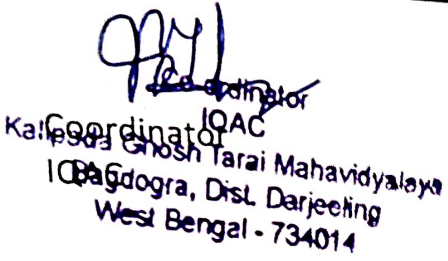 Co-ordinator
IQAC
Kalipada Ghosh Tarai Mahavidyalaya
Bagdogra, Dist. Darjeeling
West Bengal - 734014
Coordinator
IQAC